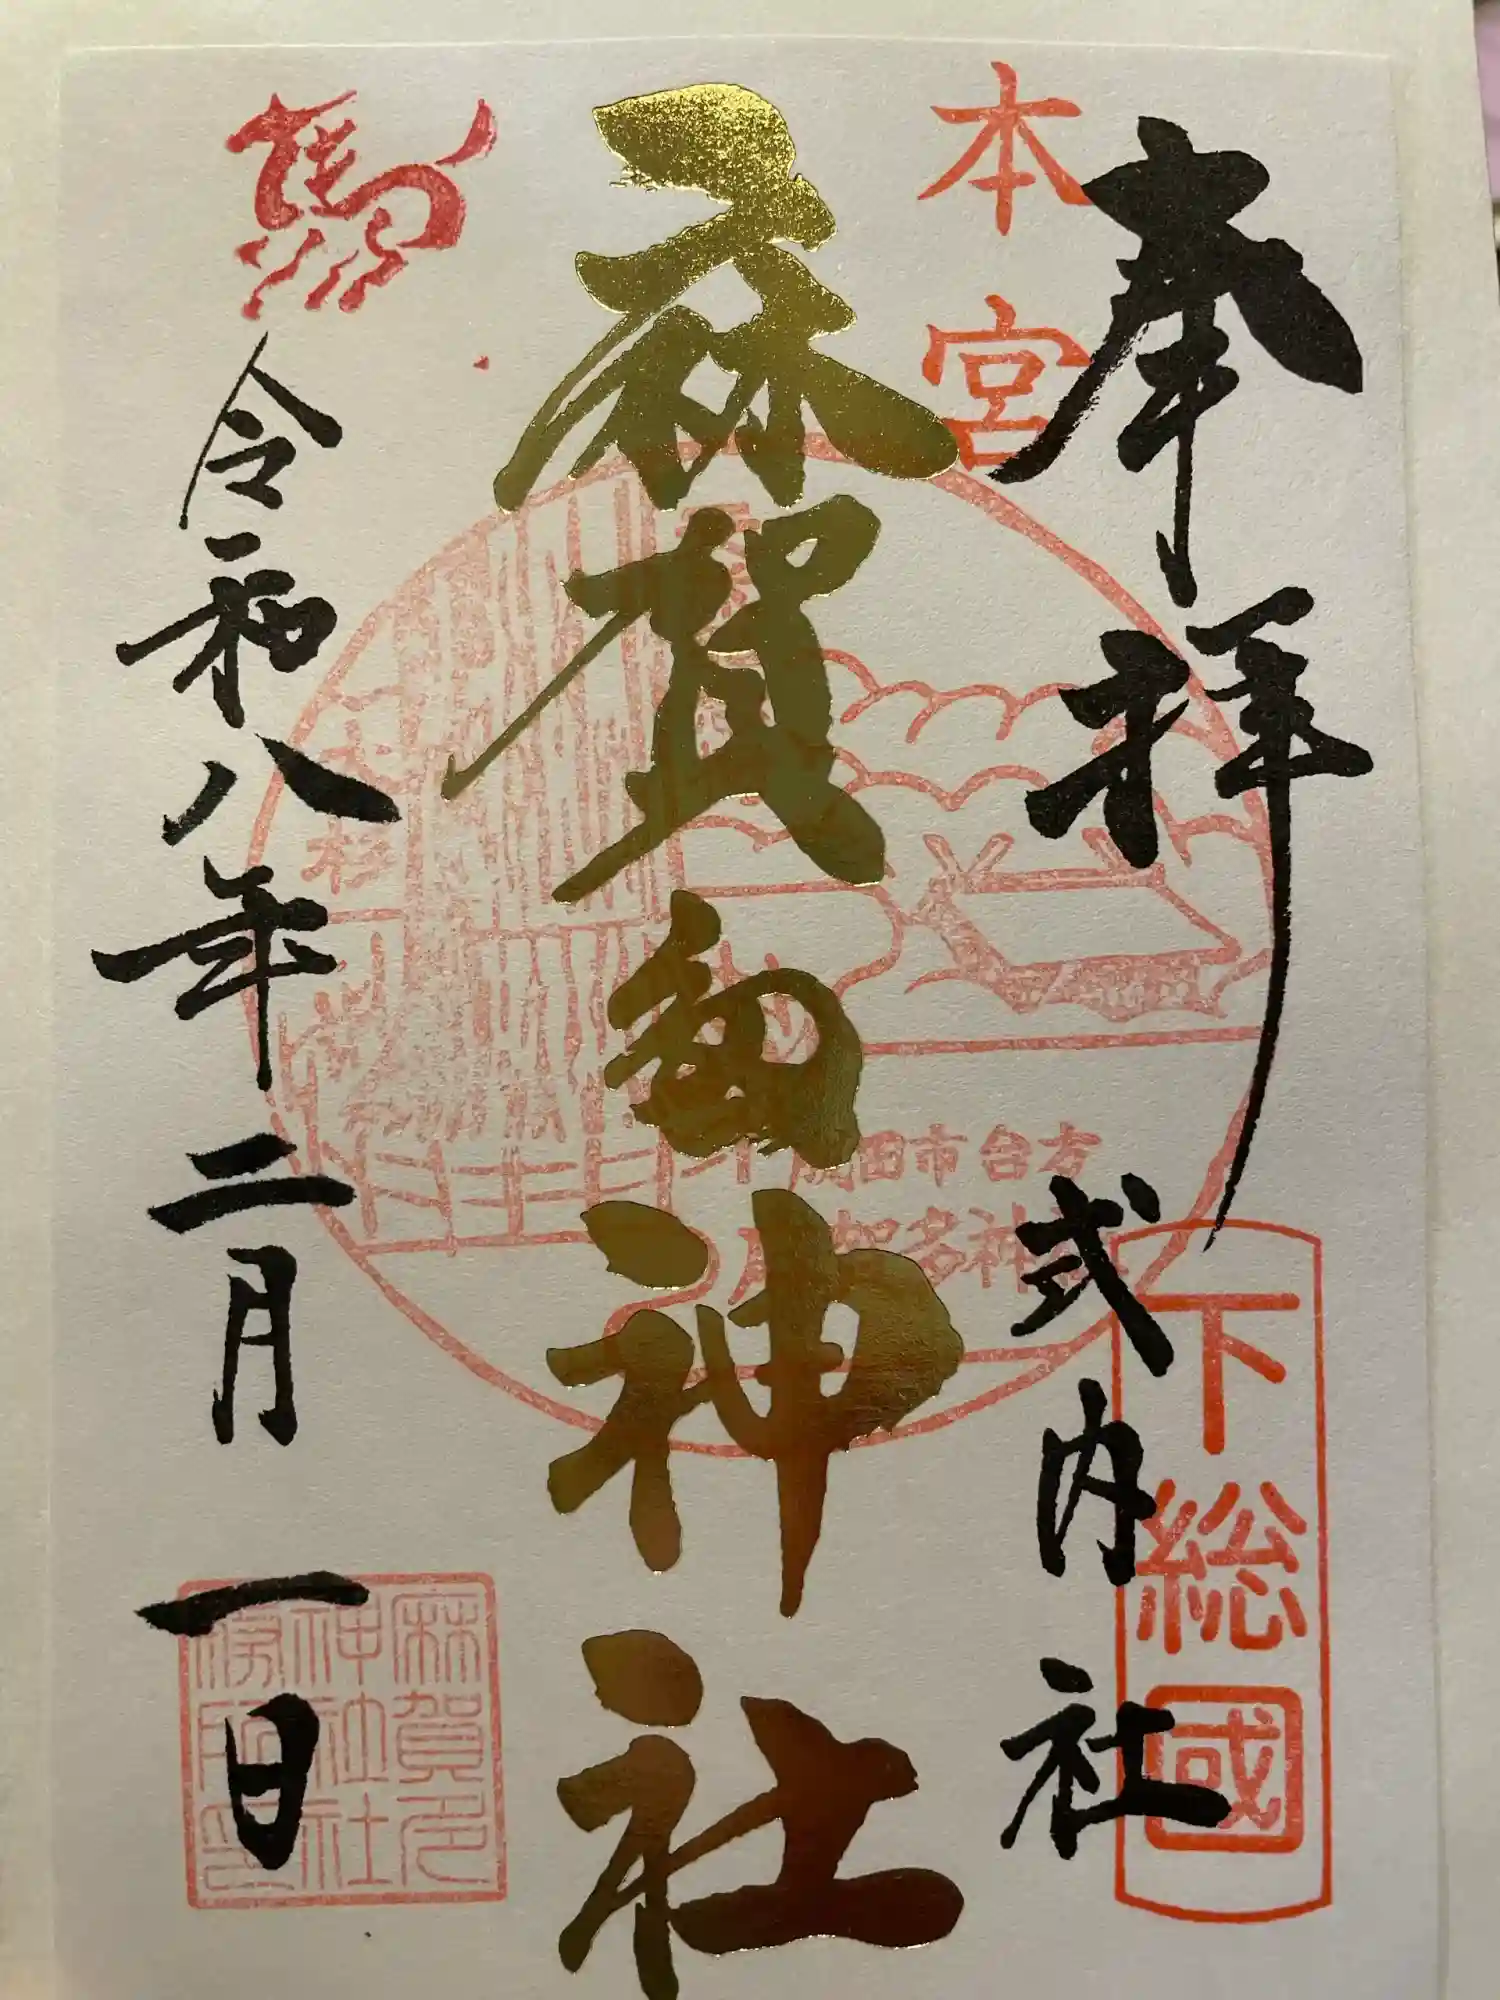 奉拝
式内社
下総國
本宮
麻賀多神社
杉
成田市台方
麻賀多神社
馬
令和八年二月一日
麻賀多
神社社
務所印